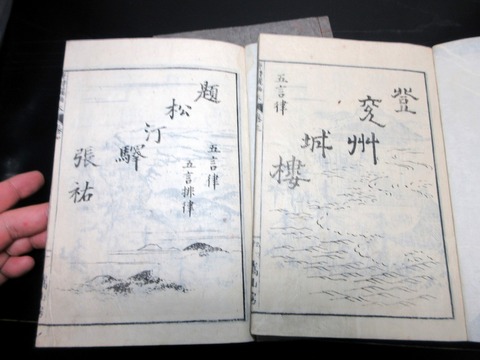 登兗州城樓
五言律
題松汀驛
五言律
五言排律
張祐